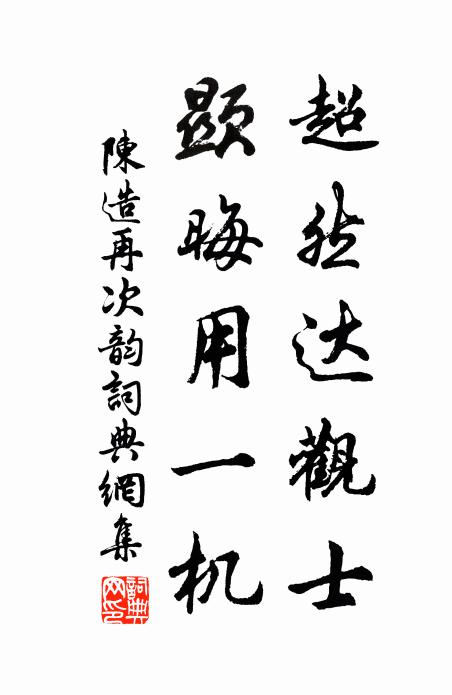 超然达觀士
顯晦用一机
陳造再次韵詞典網集
詞典网印